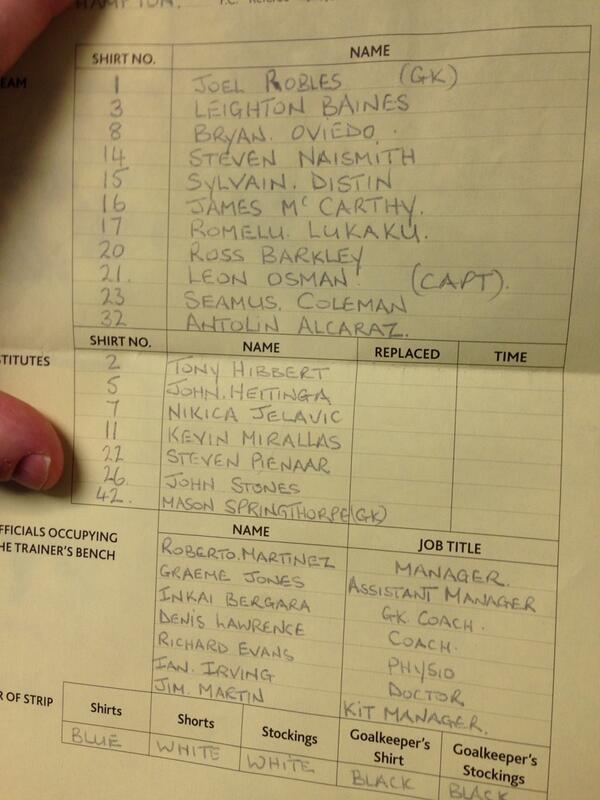 HAMPTON. F.C. Referee
SHIRT NO. NAME
EAM
1 JOEL ROBLES (GK)
3 LEIGHTON BAINES
8 BRYAN. OVIEDO.
14 STEVEN NAISMITH
15 SYLVAIN. DISTIN
16 JAMES McCARTHY.
17 ROMELU. LUKAKU.
20 ROSS BARKLEY
21. LEON OSMAN. (CAPT).
23 SEAMUS. COLEMAN
32 ANTOLIN ALCARAZ.
STITUTES
SHIRT NO. NAME REPLACED TIME
2 TONY HIBBERT
5 JOHN. HEITINGA
7 NIKICA JELAVIC
11 KEVIN MIRALLAS
22 STEVEN PIENAAR
26. JOHN STONES
42. MASON SPRINGTHORPE (GK)
FFICIALS OCCUPYING
HE TRAINER'S BENCH
NAME JOB TITLE
ROBERTO. MARTINEZ MANAGER.
GRAEME JONES ASSISTANT MANAGER
INKAI BERGARA GK. COACH.
DENIS LAWRENCE COACH.
RICHARD EVANS PHYSIO
IAN. IRVING DOCTOR
JIM. MARTIN KIT MANAGER.
R OF STRIP
Shirts Shorts Stockings Goalkeeper's Shirt Goalkeeper's Stockings
BLUE WHITE WHITE BLACK BLACK